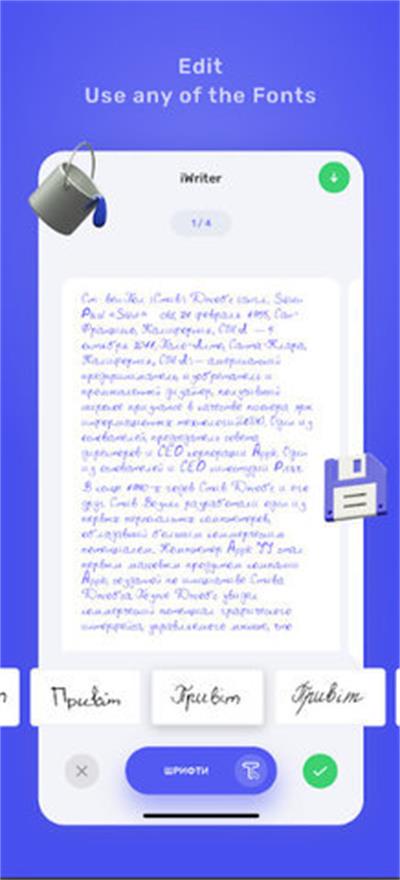 Edit
Use any of the Fonts
iWriter
1/4
Джобс
февраля 1955, Сан-
Франциско, Калифорния, США — 5
октября 2011, Пало-Алто, Санта-Клара,
Калифорния, США) — американский
предприниматель, изобретатель и
промышленный дизайнер, получивший
широкое признание в качестве пионера эры
информационных технологий Один из
основателей, председатель совета
директоров и CEO корпорации Один
из основателей и CEO киностудии
В конце годов Стив Джобс и его
друг Стив Возняк разработали один из
первых персональных компьютеров,
обладавший большим коммерческим
потенциалом. Компьютер стал
первым массовым продуктом компании
созданной по инициативе Стива
Джобса Джобс увидел
коммерческий потенциал графического
интерфейса управляемого мышью, что
Привіт Привіт Привіт
ШРИФТИ